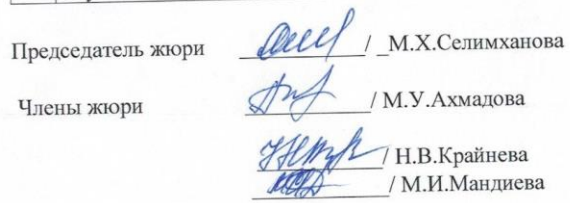 Председатель жюри / _М.Х.Селимханова
Члены жюри / М.У.Ахмадова
/ Н.В.Крайнева
/ М.И.Мандиева